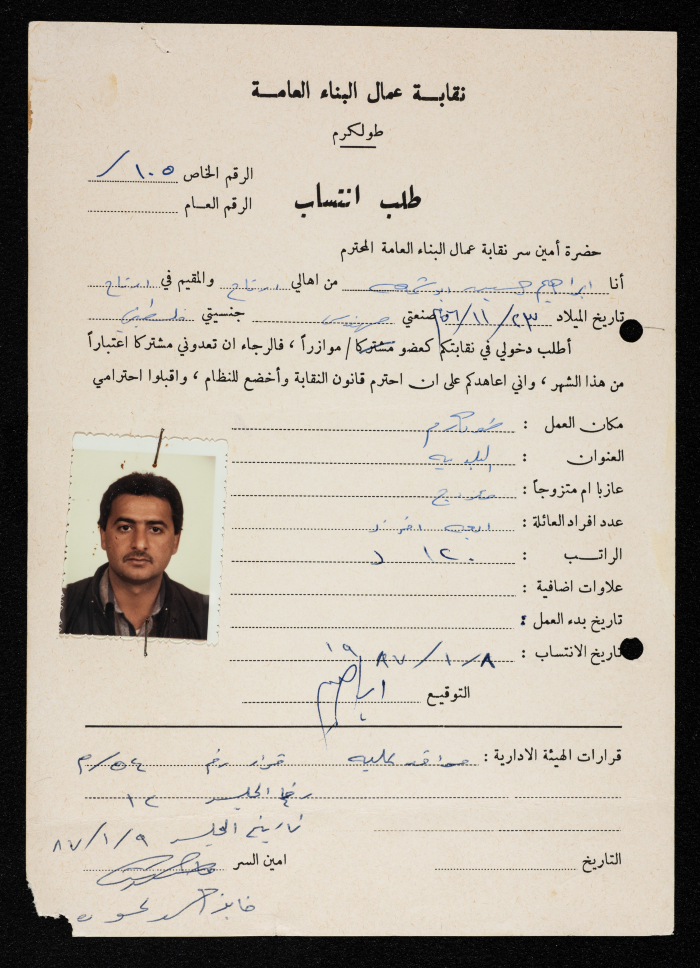 نقابة عمال البناء العامة
طولكرم
الرقم الخاص ١٠٥/
الرقم العام
طلب انتساب
حضرة أمين سر نقابة عمال البناء العامة المحترم
أنا ابراهيم حسين ابو من اهالي ارتاح والمقيم في ارتاح
تاريخ الميلاد ٢٣/١١/٥٦ صنعتي مهندس جنسيتي فلسطيني
أطلب دخولي في نقابتكم كعضو مشتركا / موازراً ، فالرجاء ان تعدوني مشتركا اعتباراً
من هذا الشهر ، واني اعاهدكم على ان احترم قانون النقابة وأخضع للنظام ، واقبلوا احترامي
مكان العمل : طولكرم
العنوان : البلدية
عازبا ام متزوجاً : متزوج
عدد افراد العائلة : اربعة افراد
الراتب : ١٢٠ د
علاوات اضافية :
تاريخ بدء العمل :
تاريخ الانتساب : ٨/١/١٩٨٧
التوقيع ابراهيم
قرارات الهيئة الادارية : موافقه عليه قرار رقم ٥٤/م
رقم الجلسة ١٢
تاريخ الجلسة ٨٧/١/٩
التاريخ
امين السر